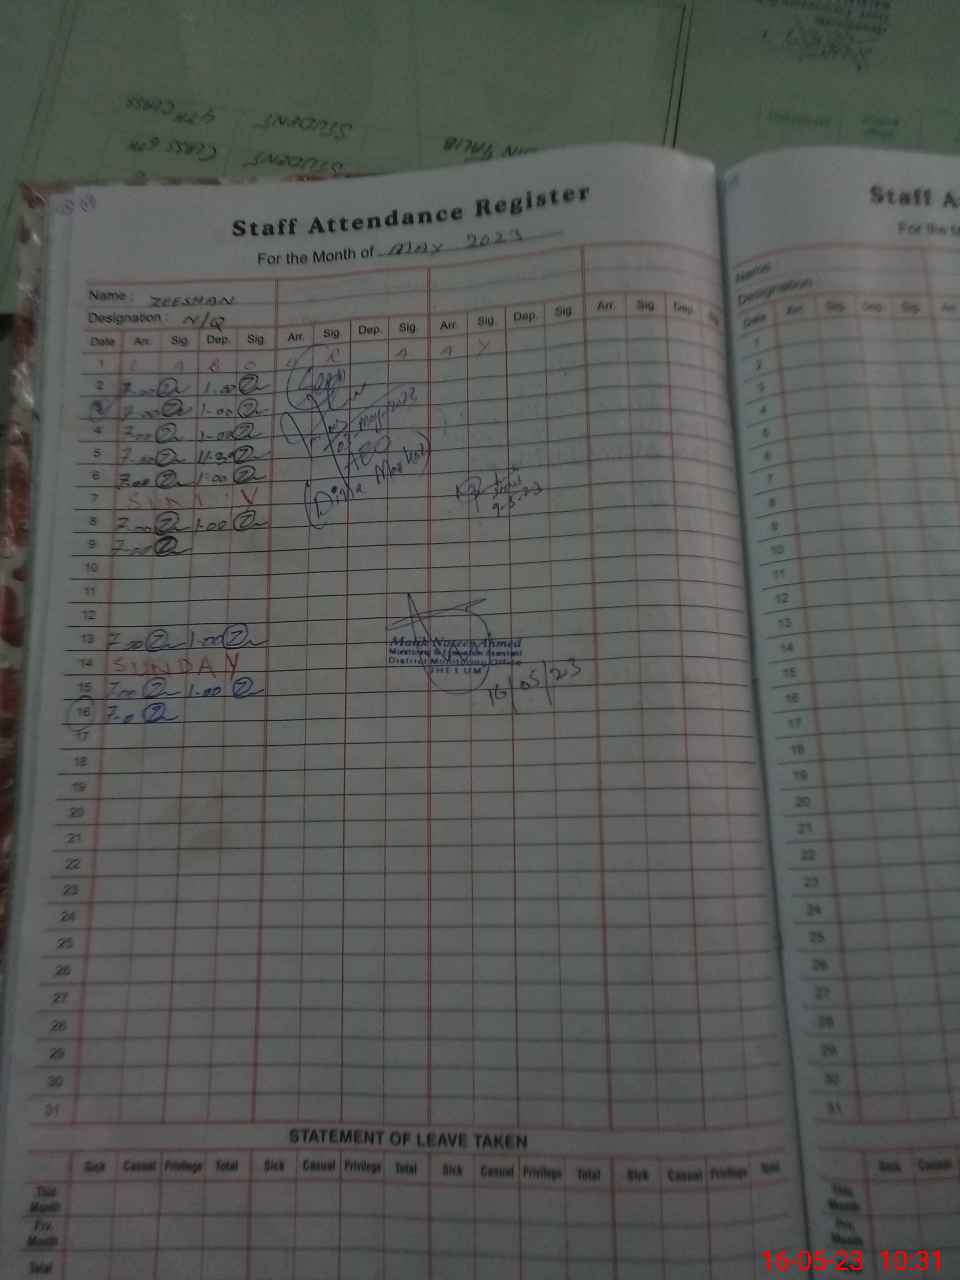 STUDENT 9TH CLASS
STUDENT CLASS 6TH
Staff Attendance Register
For the Month of MAY 2023
Name : ZEESHAN
Designation : N/Q
Date Arr. Sig. Dep. Sig. Arr. Sig. Dep. Sig. Arr. Sig. Dep. Sig. Arr. Sig. Dep.
1 L A B O U R D A Y
2 7.00 1.00
3 7.00 1.00
4 7.00 1.00
5 7.00 11.30
6 7.00 1.00
7 SUNDAY
8 7.00 1.00
9 7.00
AEO
(Dina Markaz)
9-5-23
10
11
12
13 7.00 1.00
14 SUNDAY
15 7.00 1.00
16 7.0
Malik Naseer Ahmed
District Monitoring Office
JHELUM
16/05/23
17
18
19
20
21
22
23
24
25
26
27
28
29
30
31
STATEMENT OF LEAVE TAKEN
Sick Casual Privilege Total Sick Casual Privilege Total Sick Casual Privilege Total Sick Casual Privilege Total
This Month
Prv. Month
Total
Staff A
Name :
Designation :
Date Arr. Sig. Dep. Sig.
1
2
3
4
5
6
7
8
9
10
11
12
13
14
15
16
17
18
19
20
21
22
23
24
25
26
27
28
29
30
31
Sick Casual
This Month
Prv. Month
Total
16-05-23 10:31